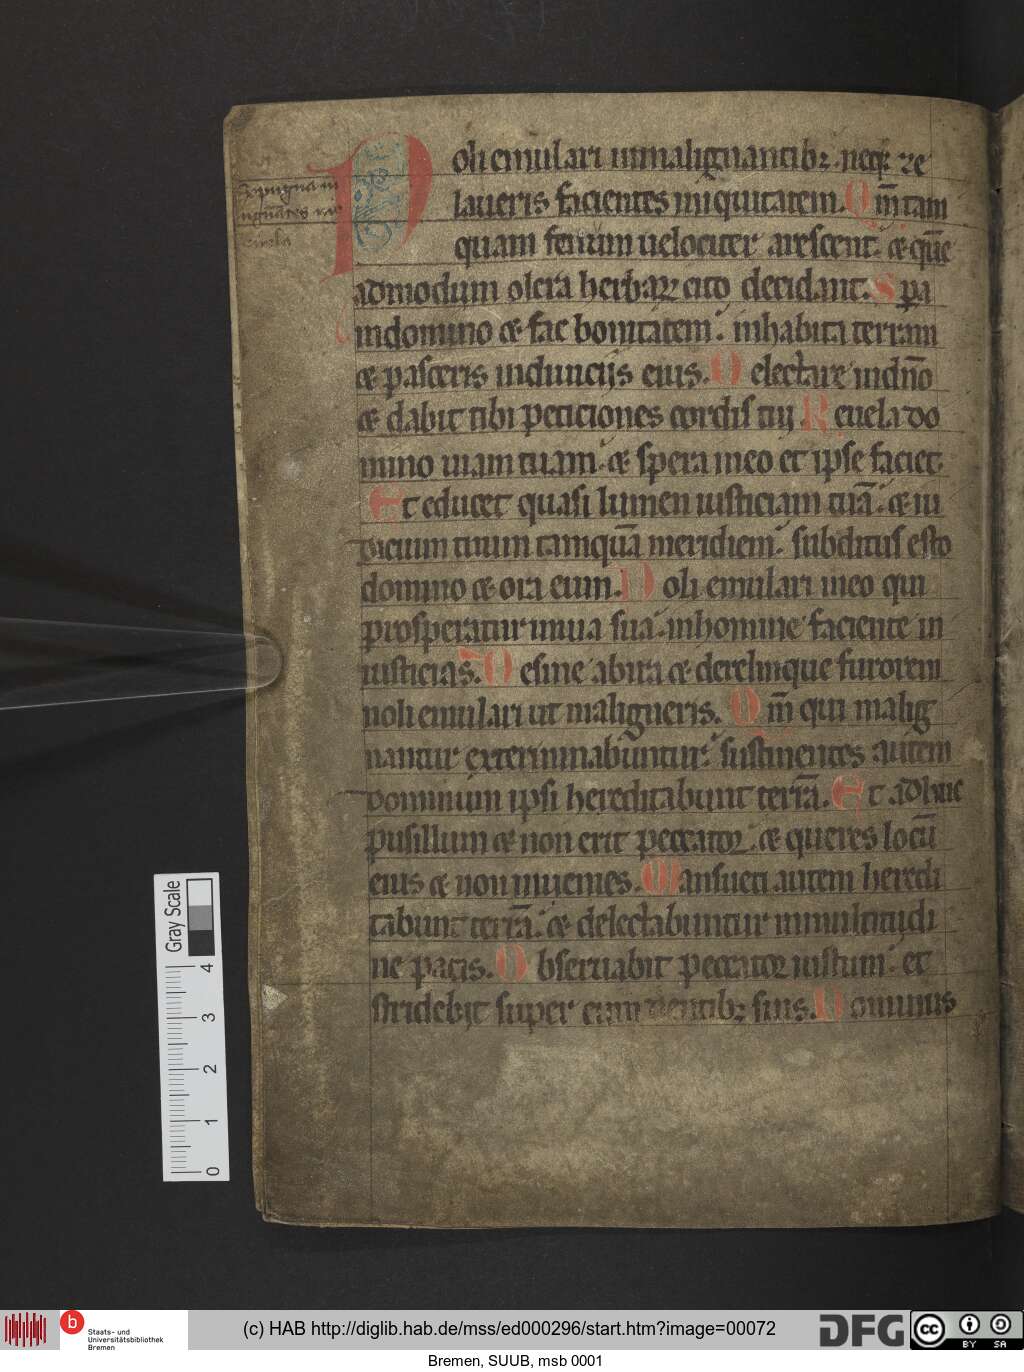 Noli emulari inmalignantibꝫ. neqꝫ ze
laueris facientes iniquitatem. Qm̄ tam
quam fenum uelociter arescent. ⁊ que̅
admodum olera herbarꝝ cito decidant. Spa
indomino ⁊ fac bonitatem. inhabita terram
⁊ pasceris indiuicijs eius. Delectare indn̄o
⁊ dabit tibi peticiones cordis tui Reuela do
mino uiam tuam. ⁊ spera ineo et ipse faciet.
Et educet quasi lumen iusticiam tuā. ⁊ iu
dicium tuum tamquā meridiem. subditus esto
domino ⁊ ora eum. Noli emulari ineo qui
prosperatur inuia sua. inhomine faciente in
iusticias. Desine abira ⁊ derelinque furorem
noli emulari ut maligneris. Qm̄ qui malig
nantur exterminabuntur. sustinentes autem
dominum ipsi hereditabunt terrā. Et adhuc
pusillum ⁊ non erit peccator. ⁊ queres locū
eius ⁊ non inuenies. Mansueti autem heredi
tabunt terrā. ⁊ delectabuntur inmultitudi
ne pacis. Obseruabit peccator iustum. et
stridebit super eum dentibꝫ suis. Dominus
Gray Scale
4
3
2
1
0
b
Staats- und
Universitätsbibliothek
Bremen
(c) HAB http://diglib.hab.de/mss/ed000296/start.htm?image=00072
DFG
cc
BY SA
Bremen, SUUB, msb 0001